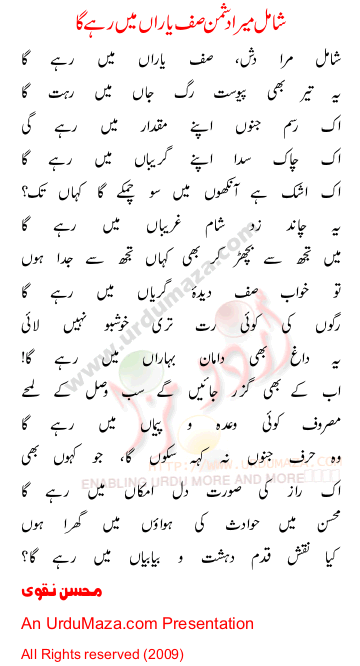 شامل میرا دشمن صف یاراں میں رہے گا
شامل مرا دشمن، صف یاراں میں رہے گا
یہ تیر بھی پیوست رگ جاں میں رہت گا
اک رسم جنوں اپنے مقدار میں رہے گی
اک چاک سدا اپنے گریباں میں رہے گا
اک اشک ہے آنکھوں میں سو چمکے گا کہاں تک؟
یہ چاند زد شام غریباں میں رہے گا
میں تجھ سے بچھڑ کر بھی کہاں تجھ سے جدا ہوں
تو خواب صف دیدۂ گریاں میں رہے گا
رگوں کی کوئی رت تری خوشبو نہیں لائی
یہ داغ بھی دامان بہاراں میں رہے گا!
اب کے بھی گزر جائیں گے سب وصل کے لمحے
مصروف کوئی وعدہ و پیماں میں رہے گا
وہ حرف جنوں نہ کہہ سکوں گا، جو کہوں بھی
اک راز کی صورت دل امکاں میں رہے گا
محسن میں حوادث کی ہواؤں میں گھرا ہوں
کیا نقش قدم دہشت و بیابیاں میں رہے گا؟
محسن نقوی
An UrduMaza.com Presentation
All Rights reserved (2009)
www.urdumaza.com
HTTP://WWW.URDUMAZA.COM
ENABLING URDU MORE AND MORE